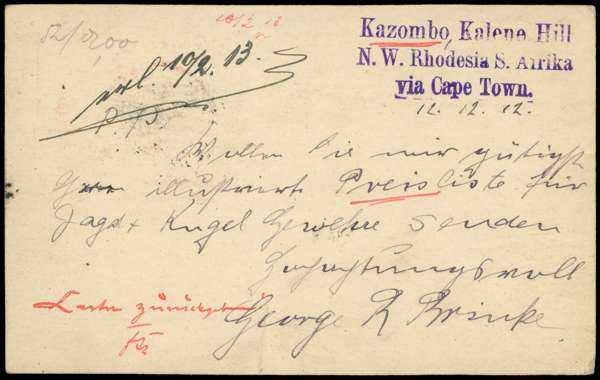 Kazombo, Kalene Hill
N. W. Rhodesia S. Afrika
via Cape Town.
12. 12. 12.
erl. 10/2. 13.
Wollen Sie mir gütigst
illustrierte Preisliste für
Jagd + Kugel Gewehre senden
Hochachtungsvoll
George R Brinke
zurück